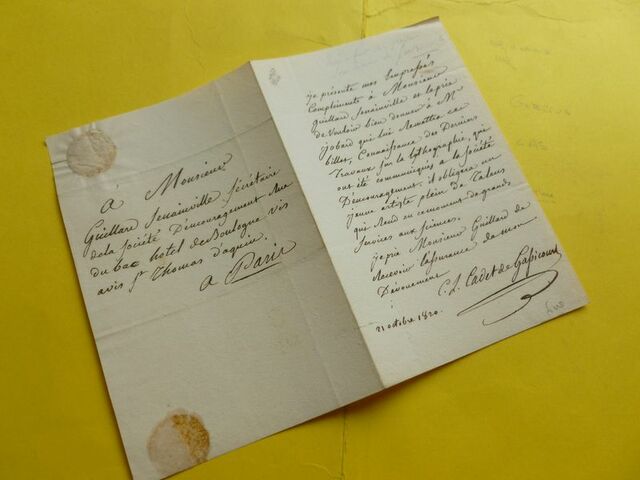 à Monsieur
Guillard Senainville Secrétaire
de la Société D'encouragement Rue
du bac hôtel de Boulogne vis
avis St Thomas d'aquin.
à Paris
je présente mes Empressés
Compliments à Monsieur
Guillard Senainville et le prie
de Vouloir bien donner à Mr
jobard qui lui Remettra ce
billet, Connaissance des Derniers
Travaux sur la lythographie, qui
ont été communiqués à la Société
D'encouragement, il obligera un
jeune artiste plein de Talens
qui Rend en ce moment de grands
Services aux sciences.
je prie Monsieur Guillard de
Recevoir l'assurance de mon
Dévouement
C. L. Cadet de Gassicourt
21 octobre 1820.